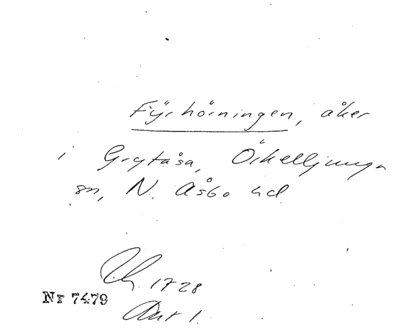 Fyrhörningen, åker
i Grytåsa, Örkelljunga
sn, N. Åsbo hd
1728
Nr 7479
Akt 1.